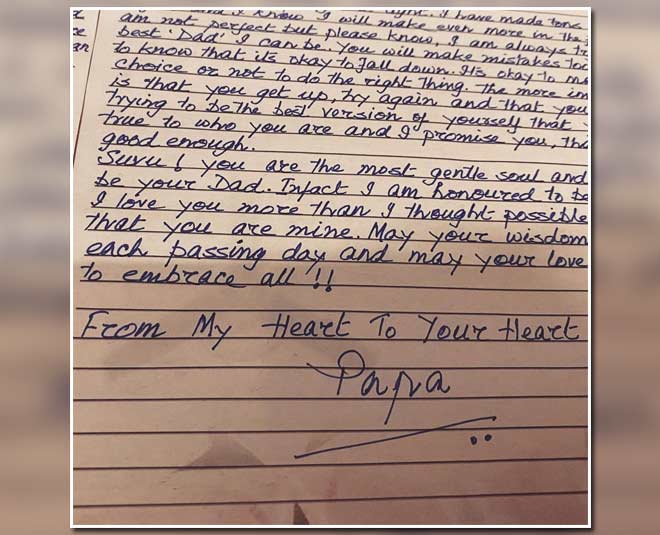 I will make even more in the
am not perfect but please know, I am always
best 'Dad' I can be. You will make mistakes too
to know that it's okay to fall down. Its okay to
choice or not to do the right thing. The more
is that you get up, try again and that you
trying to be the best version of yourself that
true to who you are and I promise you,
good enough.
Suvu! you are the most gentle soul and
be your Dad. Infact I am honoured to be
I love you more than I thought possible
that you are mine. May your wisdom
each passing day and may your love
to embrace all !!
From My Heart To Your Heart
Papa